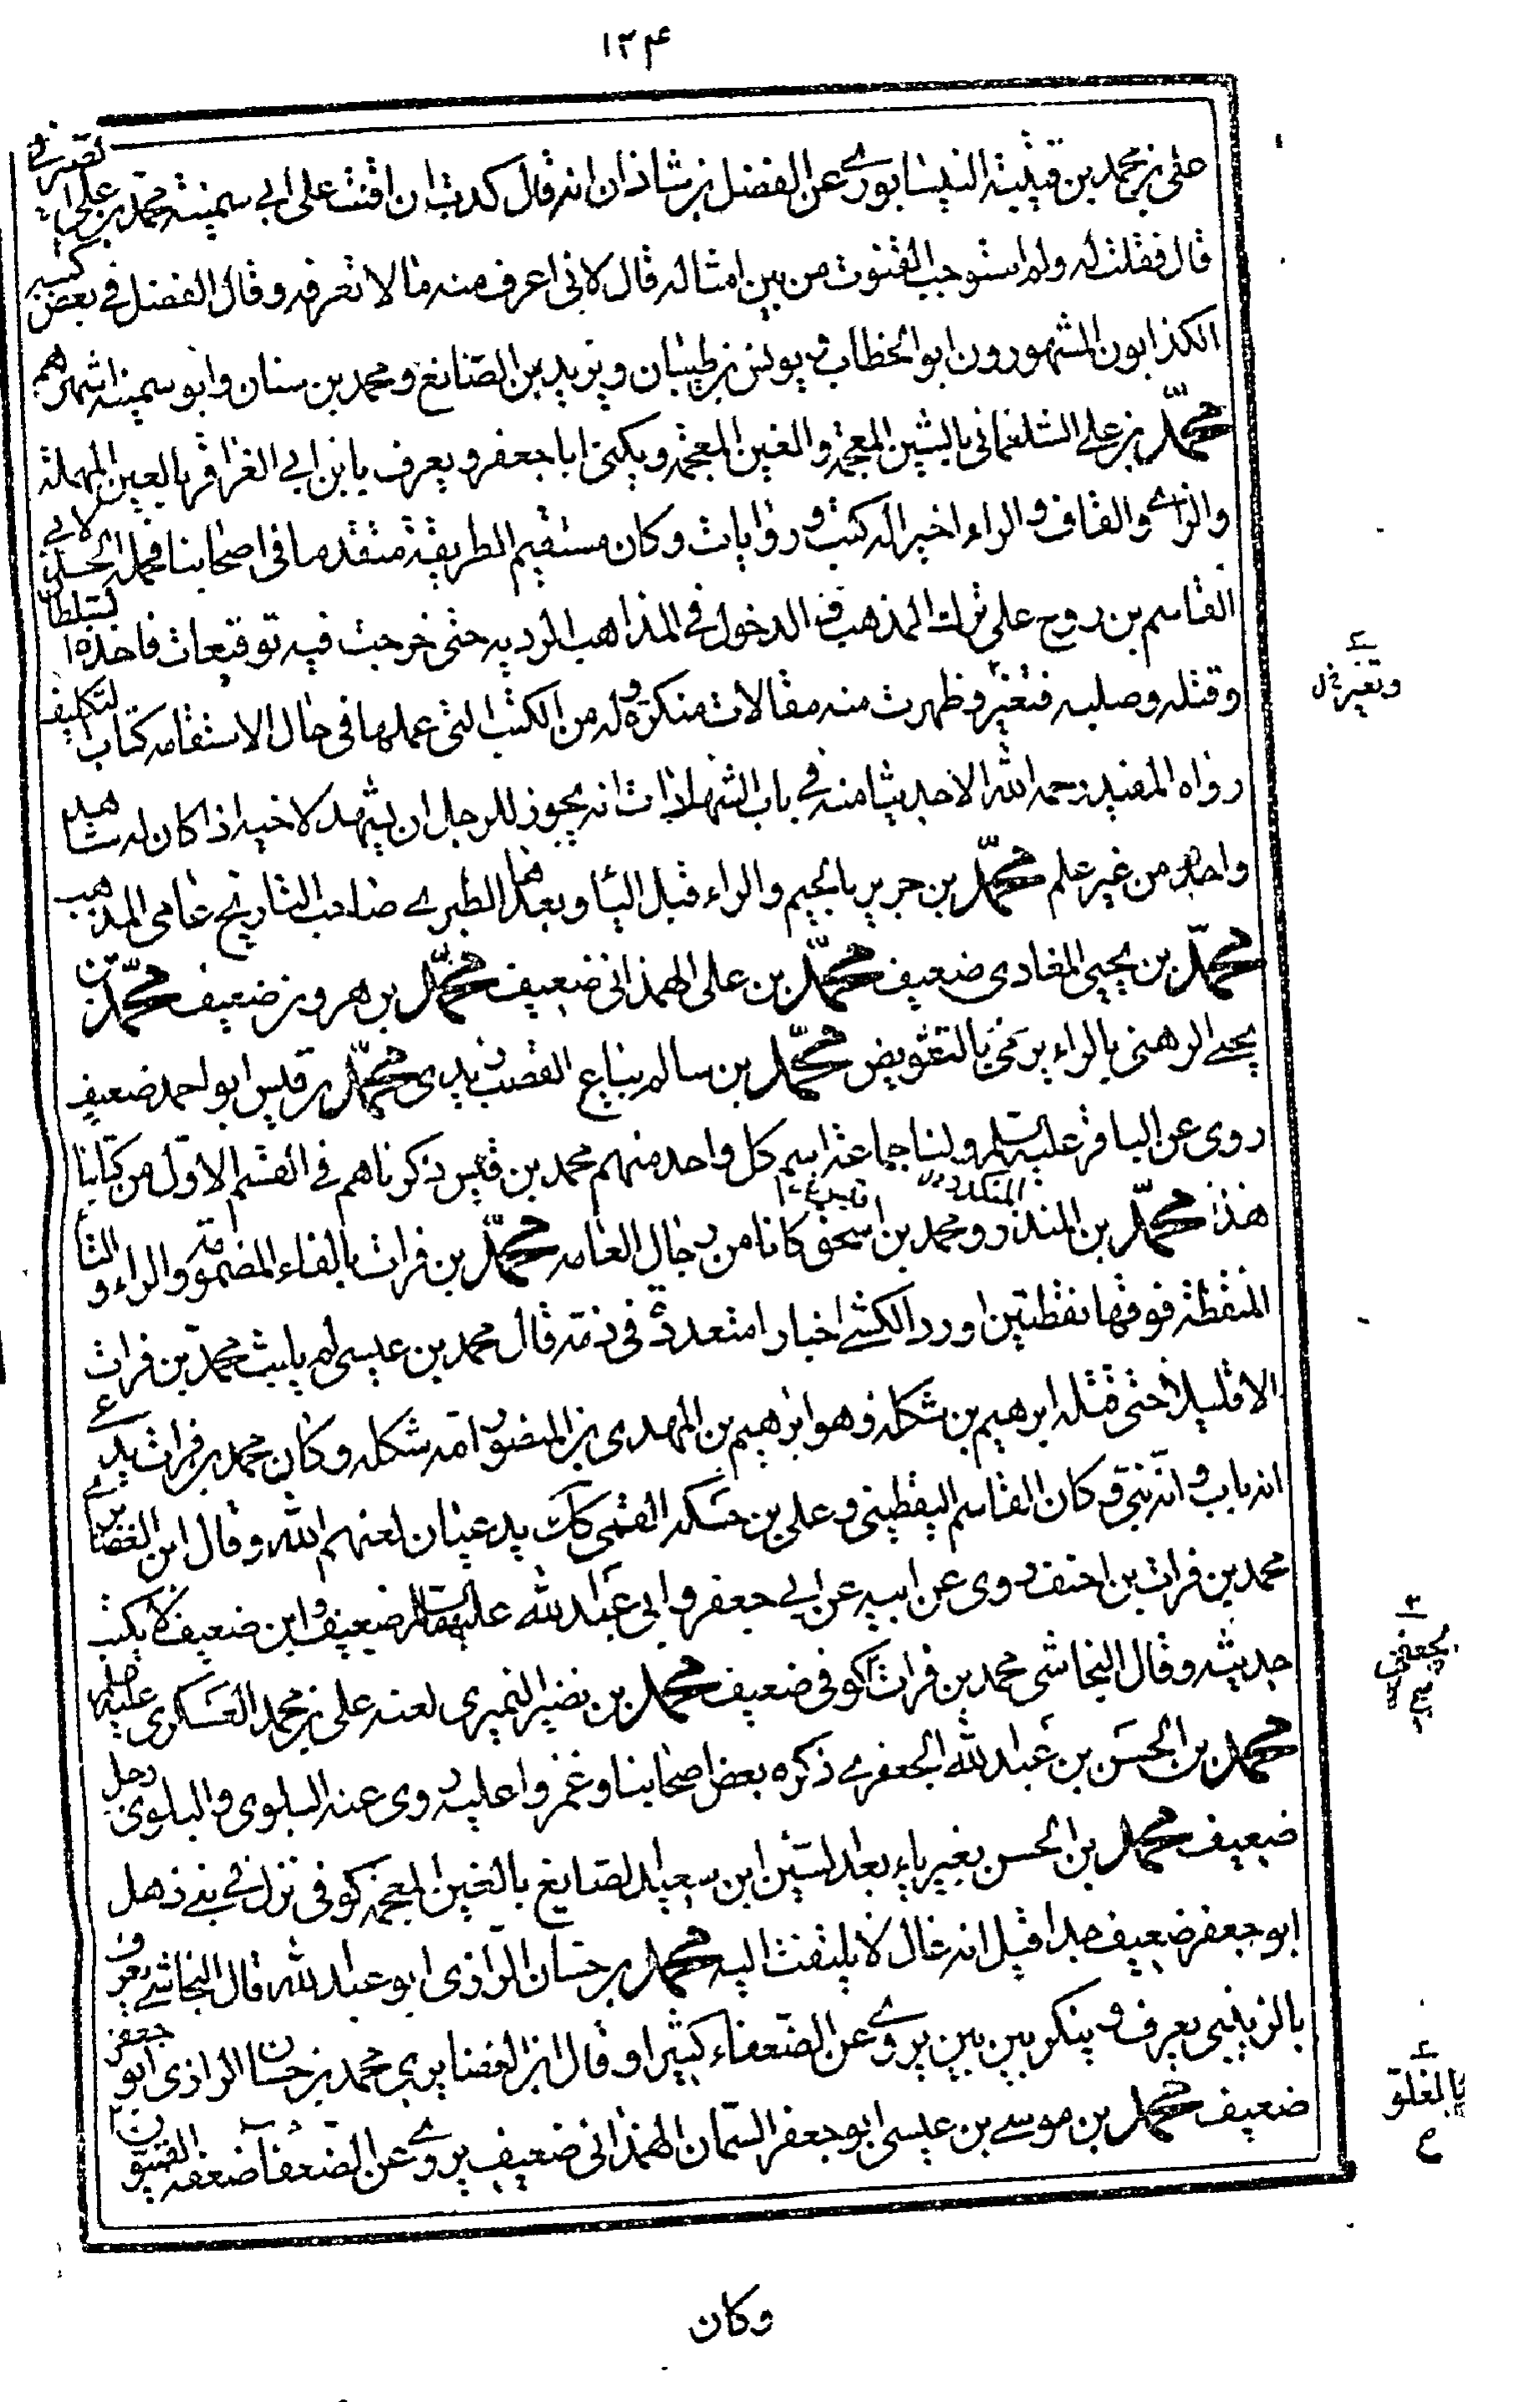 ١٣۴
علي بن محمد بن قتيبة النيسابوري عن الفضل بن شاذان انه قال كدت ان اقنت على ابي سمينة محمد بن علي الصيرفي
قال فقلت له ولم استوجب القنوت من بين امثاله قال لاني اعرف منه ما لا تعرفه وقال الفضل في بعض كتبه
الكذابون المشهورون ابو الخطاب ويونس بن ظبيان ويزيد بن الصائغ ومحمد بن سنان وابو سمينة اشهرهم
محمد بن علي الشلمغاني بالشين المعجمة والغين المعجمة ويكنى ابا جعفر ويعرف بابن ابي العزاقر بالعين المهملة
والزاي والقاف والراء اخيرا له كتب وروايات وكان مستقيم الطريقة متقدما في اصحابنا فحمله الحسد لابي
القاسم بن روح على ترك المذهب والدخول في المذاهب الردية حتى خرجت فيه توقيعات فاخذه السلطان
وقتله وصلبه فتغير وظهرت منه مقالات منكرة وله من الكتب التي عملها في حال الاستقامة كتاب التكليف
رواه المفيد رحمه الله الا حديثا منه في باب الشهادات انه يجوز للرجل ان يشهد لاخيه اذا كان له شاهد
واحد من غير علم محمد بن جرير بالجيم والراء قبل اليا وبعدها الطبري صاحب التاريخ عامي المذهب
محمد بن يحيى المعاذي ضعيف محمد بن علي الهمذاني ضعيف محمد بن هرون ضعيف محمد بن
يحيى الرهني بالراء يرمى بالتفويض محمد بن سالم بياع القصب زيدي محمد بن قيس ابو احمد ضعيف
روى عن الباقر عليه السلم ولنا جماعة اسم كل واحد منهم محمد بن قيس ذكرناهم في القسم الاول من كتابنا
هذا محمد بن المنذر ومحمد بن اسحق كانا من رجال العامة محمد بن فرات بالفاء المضمومة والراء والتاء
المنقطة فوقها نقطتين اورد الكشي اخبارا متعددة في ذمه قال محمد بن عيسى لم يلبث محمد بن فرات
الا قليلا حتى قتله ابرهيم بن شكله وهو ابرهيم بن المهدي بن المنصور امه شكله وكان محمد بن فرات يدعي
انه باب وانه نبي وكان القاسم اليقطيني وعلي بن حسكه القمي كك يدعيان لعنهم الله وقال ابن الغضائري
محمد بن فرات بن احنف روى عن ابيه عن ابي جعفر وابي عبد الله عليهما السلم ضعيف وابن ضعيف لا يكتب
حديثه وقال النجاشي محمد بن فرات كوفي ضعيف محمد بن نصير النميري لعنه علي بن محمد العسكري عليه السلم
محمد بن الحسن بن عبد الله الجعفري ذكره بعض اصحابنا وغمزوا عليه روى عنه البلوى والبلوى رجل
ضعيف محمد بن الحسن بغير ياء بعد السين ابن سعيد الصايغ بالغين المعجمة كوفي نزل في بني ذهل
ابو جعفر ضعيف جدا قيل انه غال لا يلتفت اليه محمد بن حسان الرازى ابو عبد الله قال النجاشي يعرف
بالزينبي يعرف وينكر بين بين يروي عن الضعفاء كثيرا وقال ابن الغضايرى محمد بن حسان الرازى ابو جعفر
ضعيف محمد بن موسى بن عيسى ابو جعفر السمان الهمذاني ضعيف يروي عن الضعفاء ضعفه القميون
وكان
وتغير
الجعفي
بالغلو